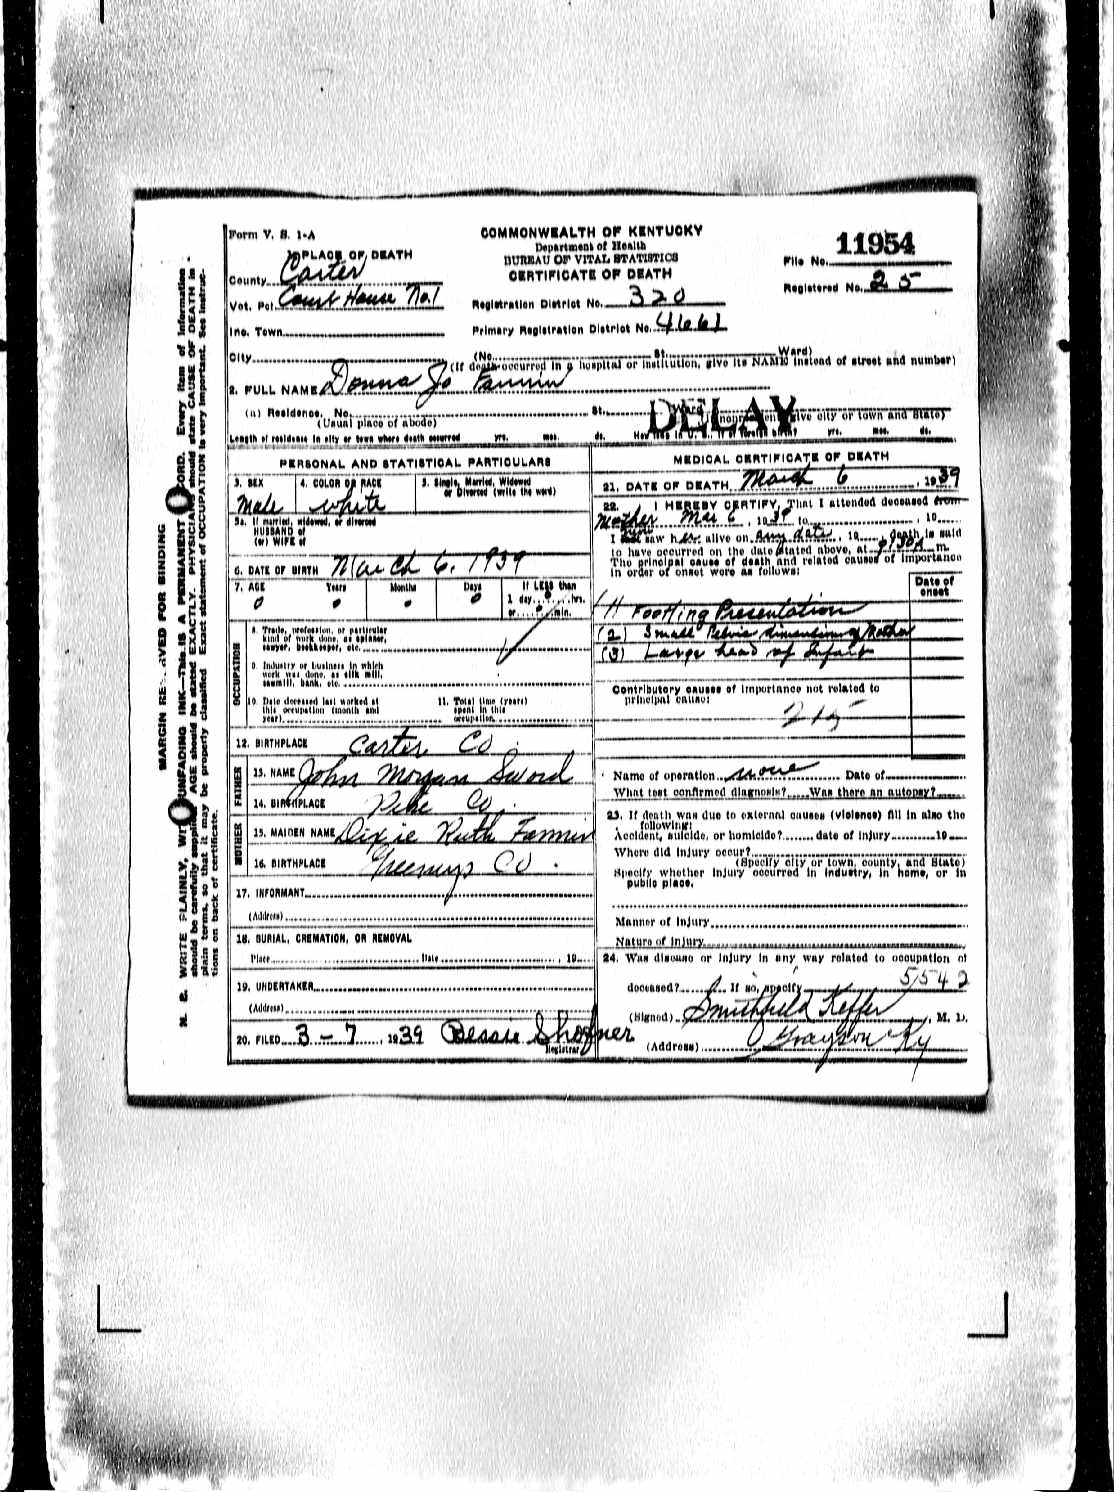 Form V. S. 1-A
COMMONWEALTH OF KENTUCKY
Department of Health
BUREAU OF VITAL STATISTICS
CERTIFICATE OF DEATH
File No. 11954
Registered No. 25
1. PLACE OF DEATH
County Carter
Vot. Pct. Court House No. 1
Registration District No. 320
Inc. Town
Primary Registration District No. 4661
City (No. St. Ward)
(If death occurred in a hospital or institution, give its NAME instead of street and number)
2. FULL NAME Donna Jo Fannin
(a) Residence. No. St. Ward
(Usual place of abode) give city or town and State)
DELAY
Length of residence in city or town where death occurred yrs. mos. ds. How long in U. S., if of foreign birth? yrs. mos. ds.
PERSONAL AND STATISTICAL PARTICULARS
3. SEX 4. COLOR OR RACE 5. Single, Married, Widowed
or Divorced (write the word)
Male white
5a. If married, widowed, or divorced
HUSBAND of
(or) WIFE of
6. DATE OF BIRTH March 6, 1939
7. AGE Years Months Days If LESS than
1 day 0 hrs.
or 0 min.
0 0 0 0
OCCUPATION
8. Trade, profession, or particular
kind of work done, as spinner,
sawyer, bookkeeper, etc.
9. Industry or business in which
work was done, as silk mill,
sawmill, bank, etc.
10. Date deceased last worked at
this occupation (month and
year)
11. Total time (years)
spent in this
occupation
12. BIRTHPLACE Carter Co
FATHER
13. NAME John Morgan Sword
14. BIRTHPLACE Pike Co.
MOTHER
15. MAIDEN NAME Dixie Ruth Fannin
16. BIRTHPLACE Greenup Co.
17. INFORMANT
(Address)
18. BURIAL, CREMATION, OR REMOVAL
Place Date , 19
19. UNDERTAKER
(Address)
20. FILED 3-7, 1939 Bessie Shofner
Registrar
MEDICAL CERTIFICATE OF DEATH
21. DATE OF DEATH March 6, 1939
22. I HEREBY CERTIFY, That I attended deceased from
Mother Mar 6, 1939 to , 19
I saw her alive on any date, 19 death is said
to have occurred on the date stated above, at m.
The principal cause of death and related causes of importance
in order of onset were as follows:
Date of
onset
(1) Footling Presentation
(2) Small Pelvic dimension of Mother
(3) Large head of Infant
Contributory causes of importance not related to
principal cause:
215
Name of operation none Date of
What test confirmed diagnosis? Was there an autopsy?
23. If death was due to external causes (violence) fill in also the
following:
Accident, suicide, or homicide? date of injury 19
Where did injury occur?
(Specify city or town, county, and State)
Specify whether injury occurred in industry, in home, or in
public place.
Manner of injury
Nature of injury
24. Was disease or injury in any way related to occupation of
deceased? If so, specify
5542
(Signed) Smithfield Keffer, M. D.
(Address) Grayson Ky
MARGIN RESERVED FOR BINDING
N. B. WRITE PLAINLY, WITH UNFADING INK—THIS IS A PERMANENT RECORD. Every item of information
should be carefully supplied. AGE should be stated EXACTLY. PHYSICIANS should state CAUSE OF DEATH in
plain terms, so that it may be properly classified. Exact statement of OCCUPATION is very important. See instruc-
tions on back of certificate.